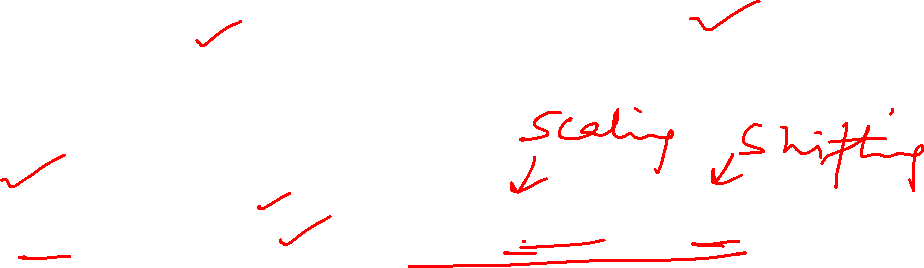 Scaling Shifting